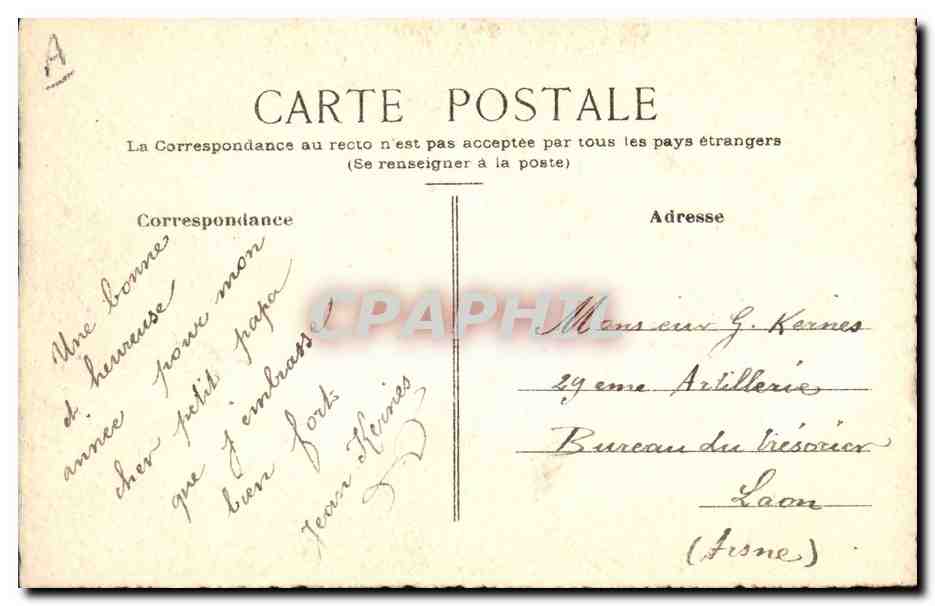 A
CARTE POSTALE
La Correspondance au recto n'est pas acceptée par tous les pays étrangers
(Se renseigner à la poste)
Correspondance
Une bonne
et heureuse
année pour mon
cher petit papa
que j'embrasse
bien fort
Jean Kernes
Adresse
Monsieur G. Kernes
29eme Artillerie
Bureau du trésorier
Laon
(Aisne)
CPAPHIL